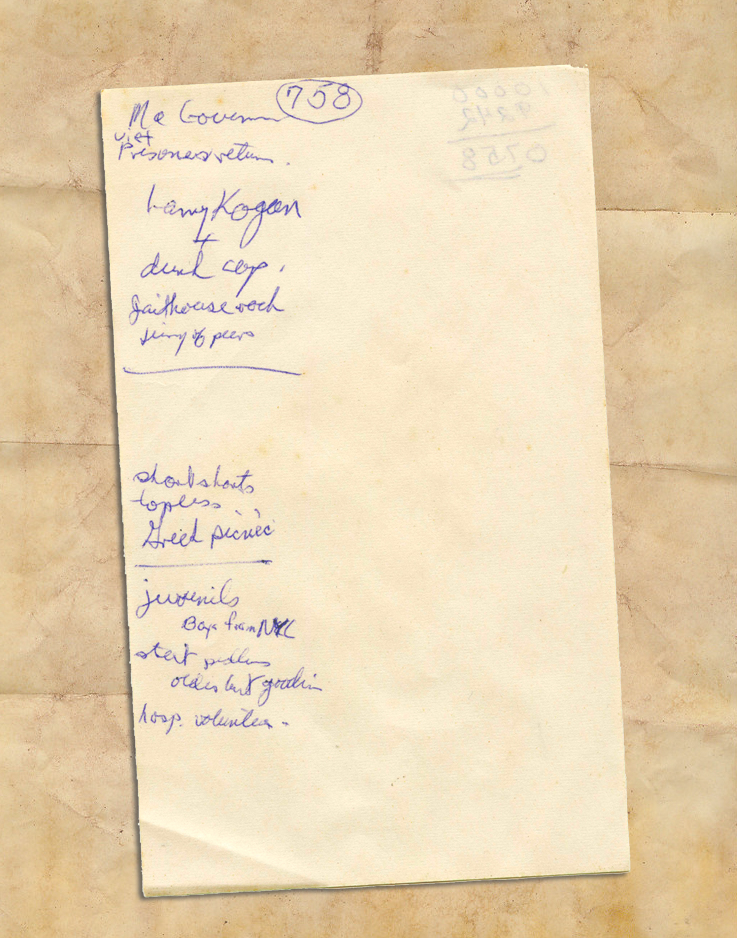 758
Mc Govern
Viet
Prisoners return.
Larry Kogan
+
drunk cop.
Jailhouse rock
jury of peers
short shorts
topless
Greek picnic
juvenils
Boys from NYC
street
older but
hosp. volunteer -
10000
9242
0758